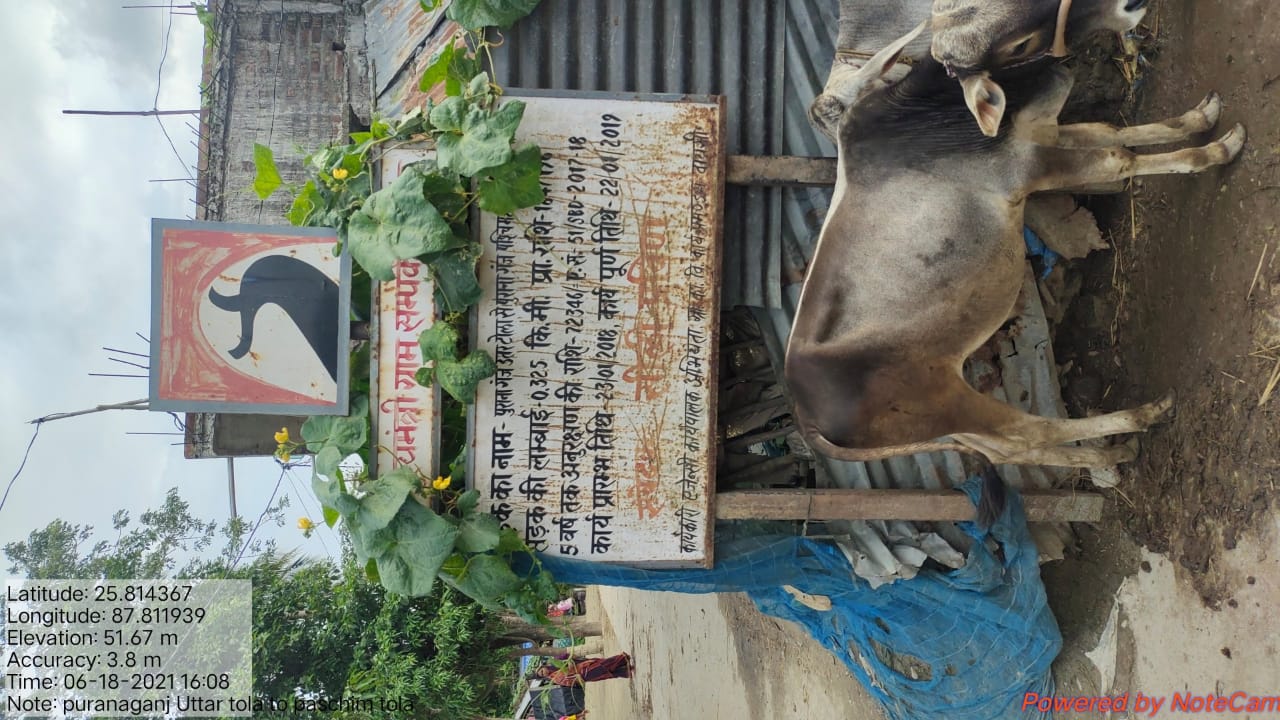 धानमंत्री ग्राम सम्पर्क
क का नाम- पुरानागंज उत्तर टोला से पुराना गंज पश्चिम
सड़क की लम्बाई- 0.325 कि.मी. प्रा. राशि-
5 वर्ष तक अनुरक्षण की राशि- 72346/- ए.सं. 51/SBD-2017-18
कार्य प्रारम्भ तिथि- 23/01/2018, कार्य पूर्ण तिथि- 22/01/2019
कार्यकारी एजेंसी कार्यपालक अभियंता, ग्रा.का.वि. कार्य प्रमण्डल
Latitude: 25.814367
Longitude: 87.811939
Elevation: 51.67 m
Accuracy: 3.8 m
Time: 06-18-2021 16:08
Note: puranaganj Uttar tola to paschim tola
Powered by NoteCam